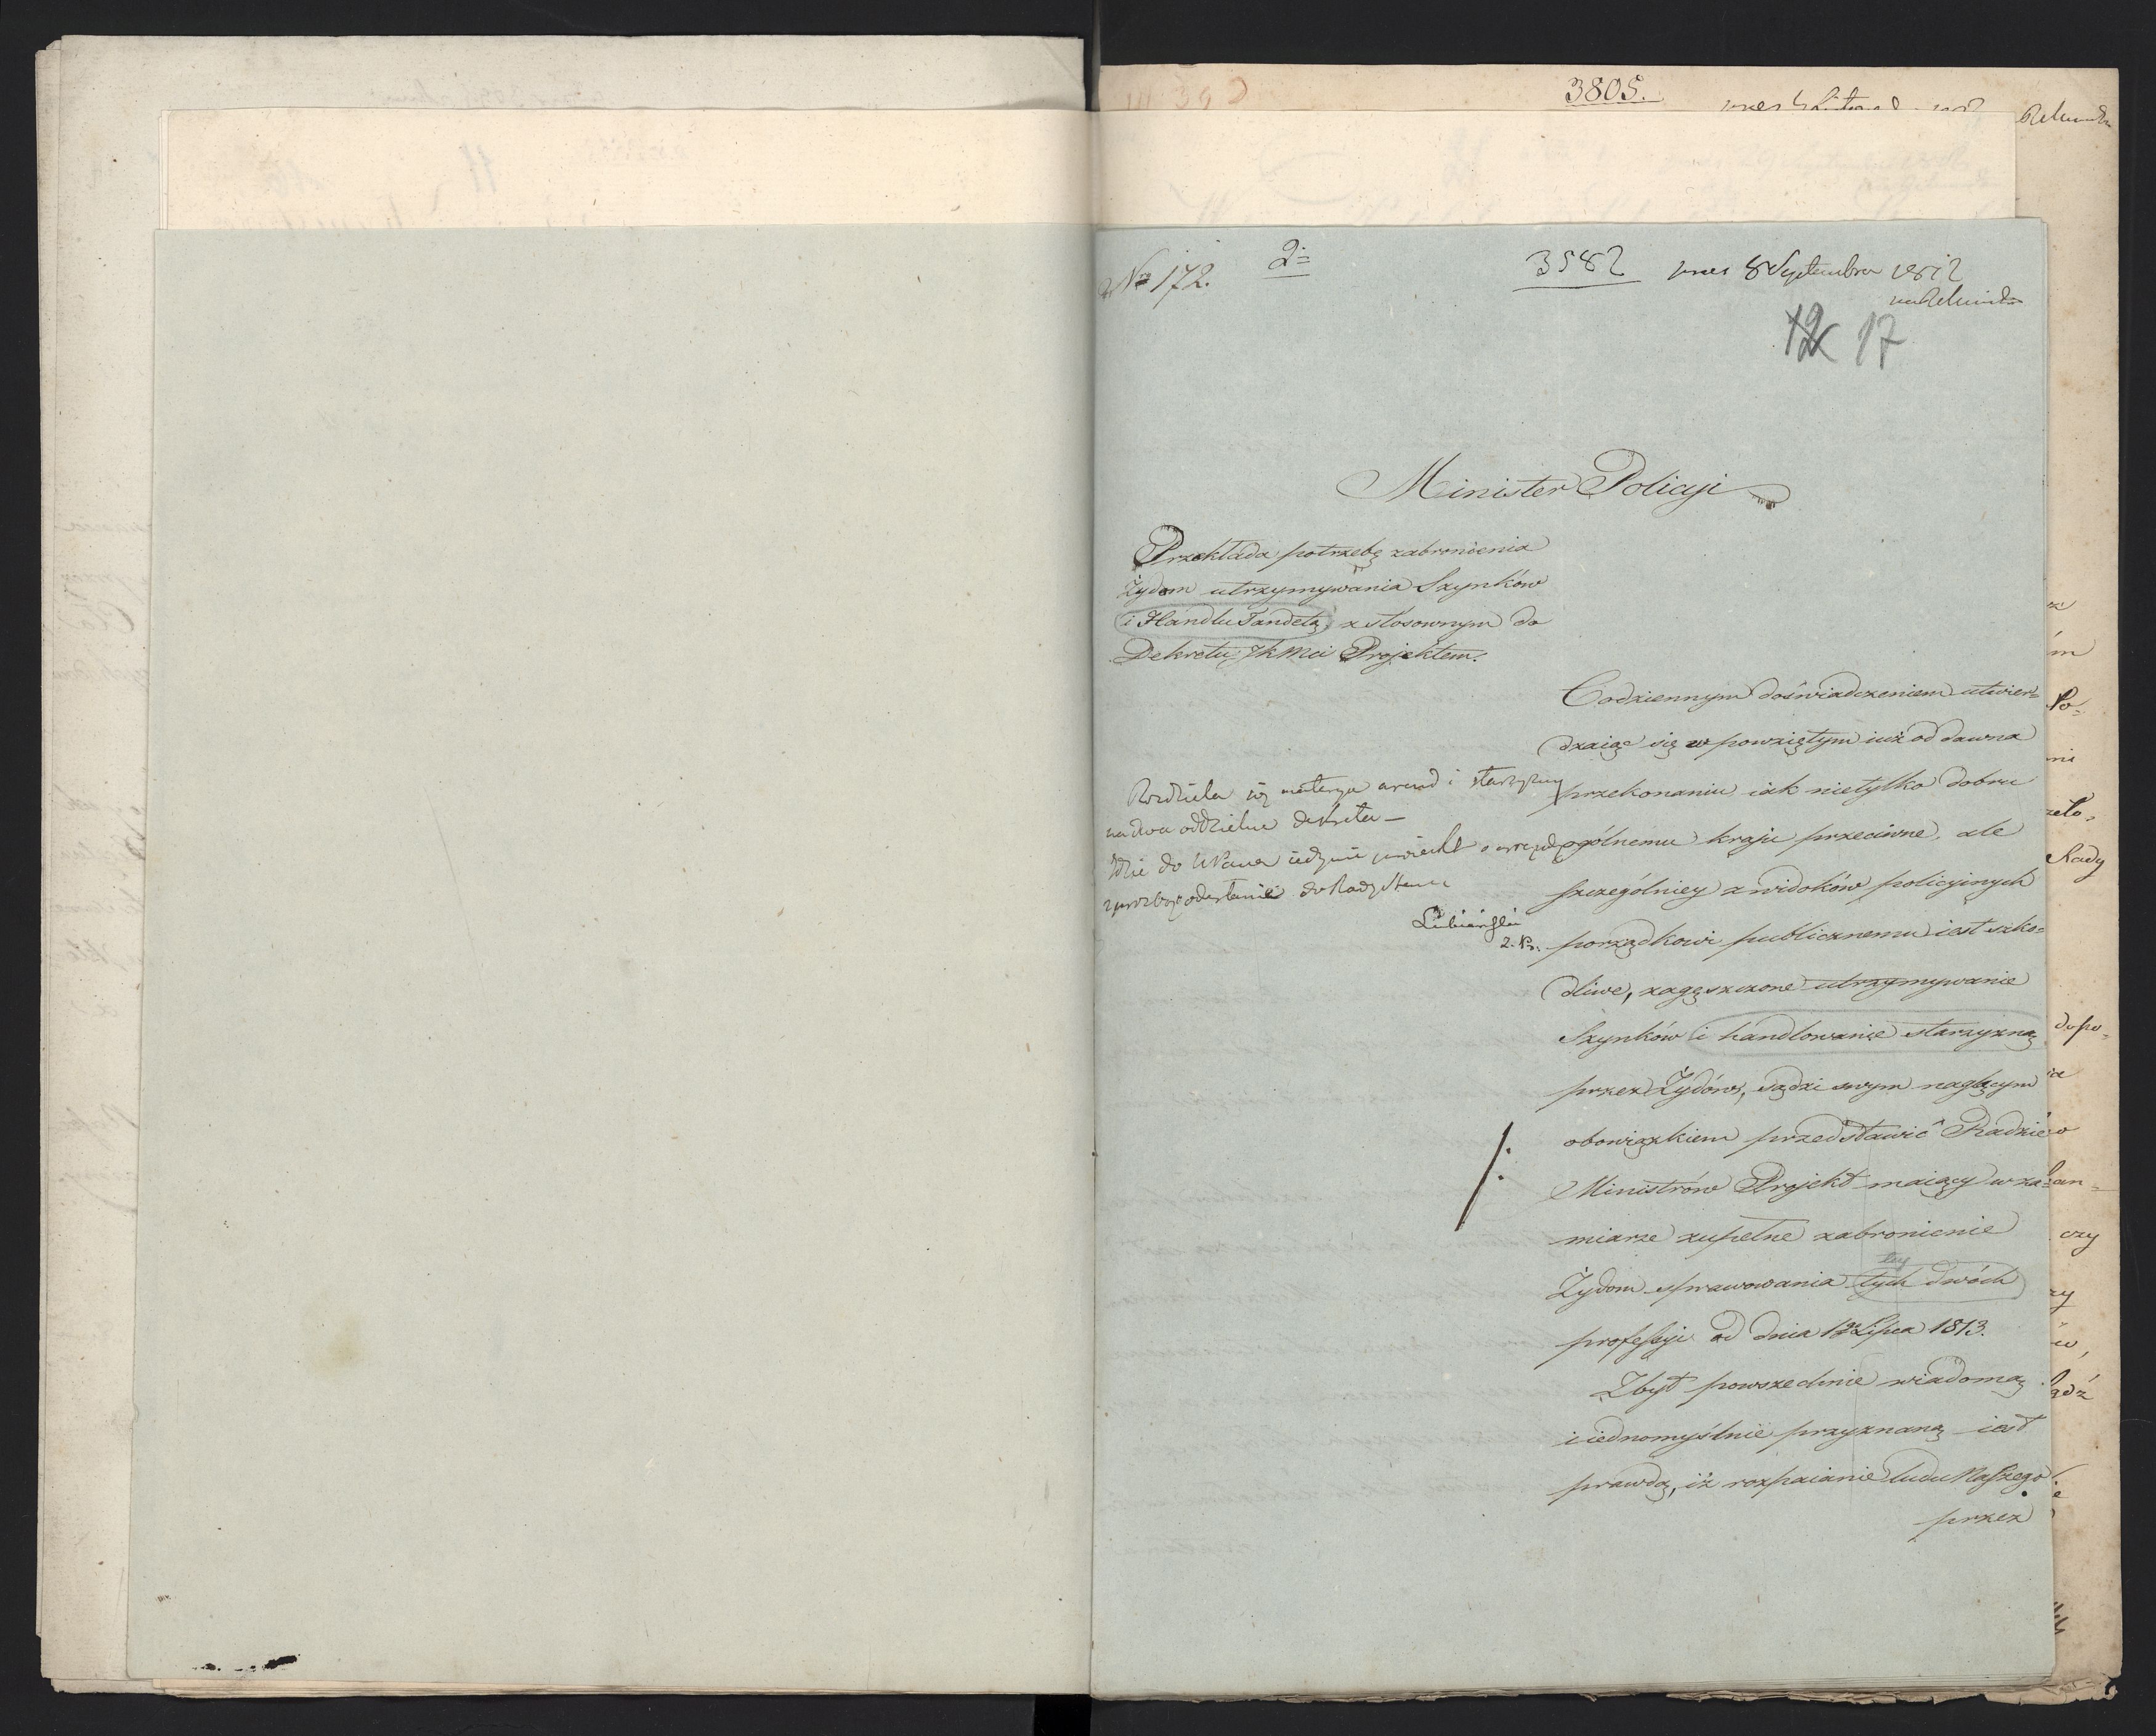 3805.
Nro 172.
2=
3582 wnes 8 Septembra 1812
12 17
Minister Policyi
Przekłada potrzebę zabronienia
Żydom utrzymywania Szynków
i Handlu Tandetą, z stosownym do
Dekretu JKMci Projektem.
Rozdziela się materya arend i starzyzny
na dwa oddzielne dekreta —
Łubieński
Codziennym doświadczeniem utwier=
dzaiąc się w powziętym iuż od dawna
przekonaniu iak nietylko dobru
ogólnemu kraju przeciwne, ale
szczególniey z widoków policyinych
porządkowi publicznemu iest szko=
dliwe, zagęszczone utrzymywanie
Szynków i handlowanie starzyzną
przez Żydów, sądzi swym naglącym
obowiązkiem przedstawić Radzie
Ministrów Projekt maiący w za=
miarze zupełne zabronienie
Żydom sprawowania tych dwóch
professyi od dnia 1go Lipca 1813.
Zbyt powszechnie wiadomą
i iednomyślnie przyznaną iest
prawdą, iż rozpaianie ludu Naszego
przez